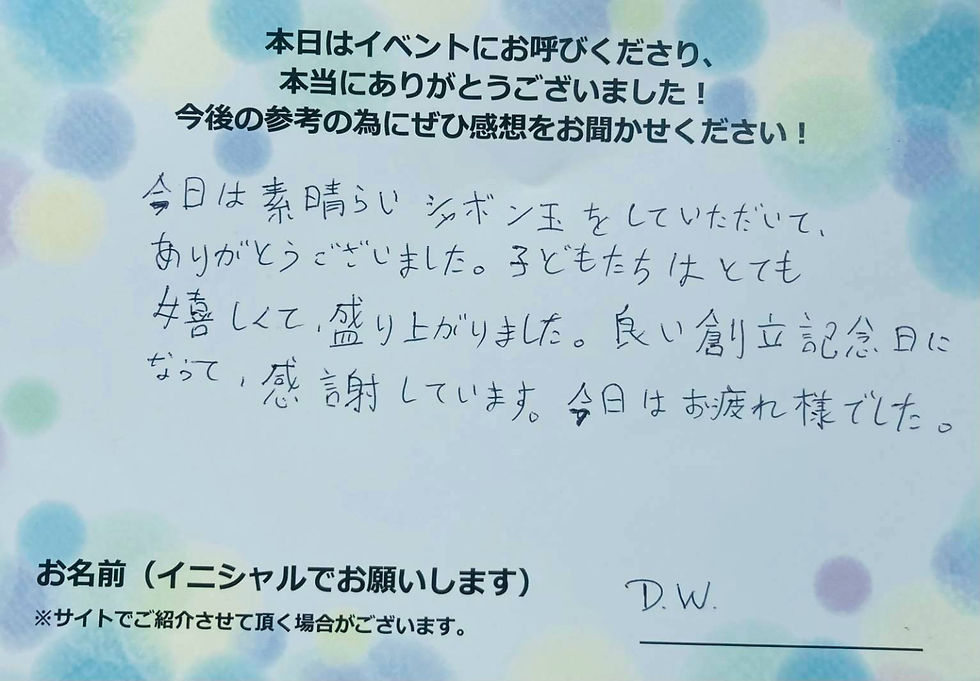 本日はイベントにお呼びくださり、
本当にありがとうございました！
今後の参考の為にぜひ感想をお聞かせください！
今日は素晴らい シャボン玉をしていただいて、
ありがとうございました。子どもたちはとても
嬉しくて、盛り上がりました。良い創立記念日に
なって、感謝しています。今日はお疲れ様でした。
お名前（イニシャルでお願いします）
D.W.
※サイトでご紹介させて頂く場合がございます。